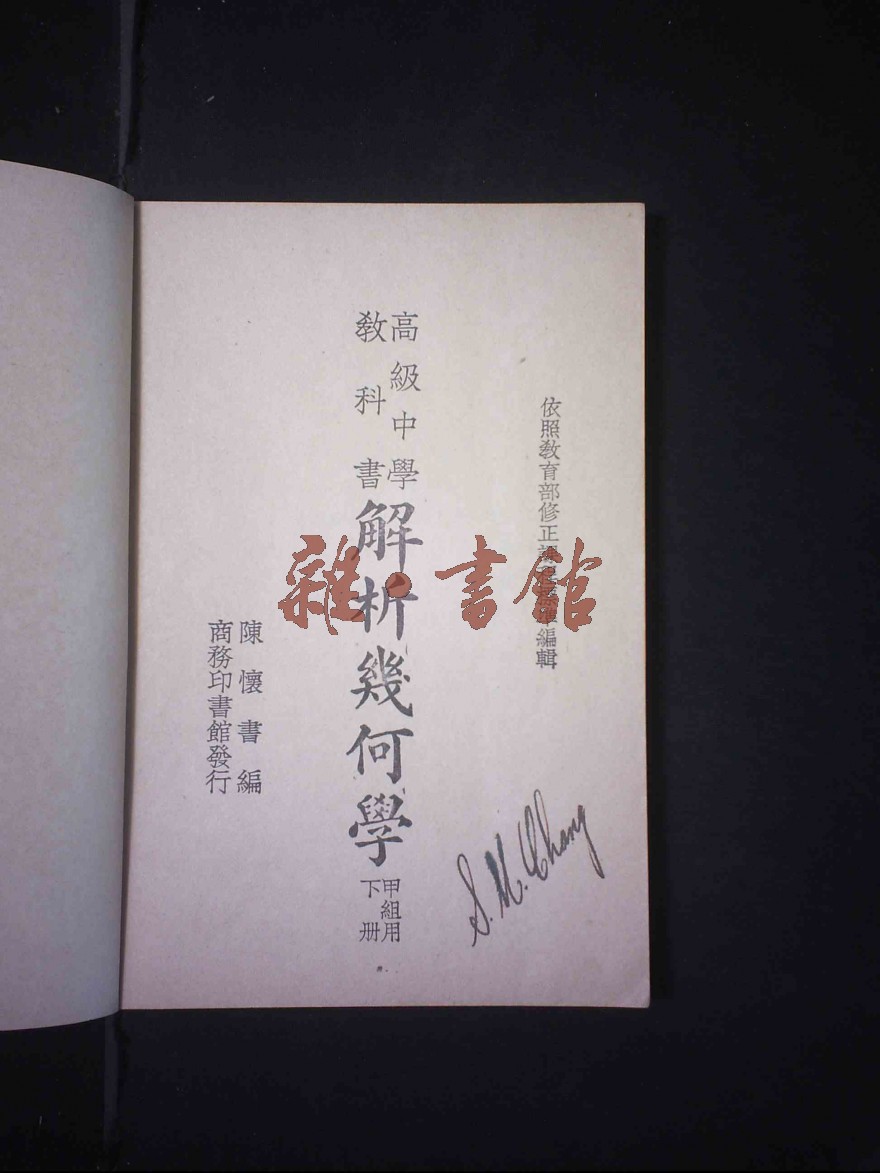 依照教育部修正課程標準編輯
高級中學
教科書
解析幾何學
甲組用
下册
陳懷書編
商務印書館發行
雜·書館
S. M. Chang